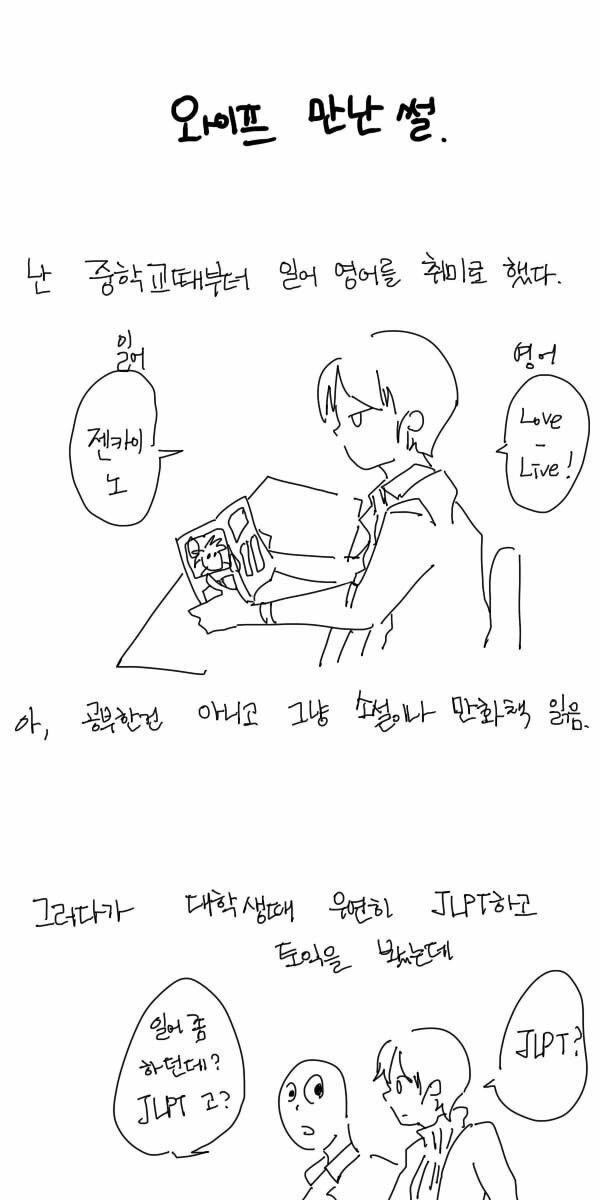 와이프 만난 썰.
난 중학교때부터 일어 영어를 취미로 했다.
일어
젠카이
노
영어
Love
-
Live!
아, 공부한건 아니고 그냥 소설이나 만화책 읽음.
그러다가 대학생때 우연히 JLPT하고
토익을 봤는데
일어 좀
하던데?
JLPT 고?
JLPT?